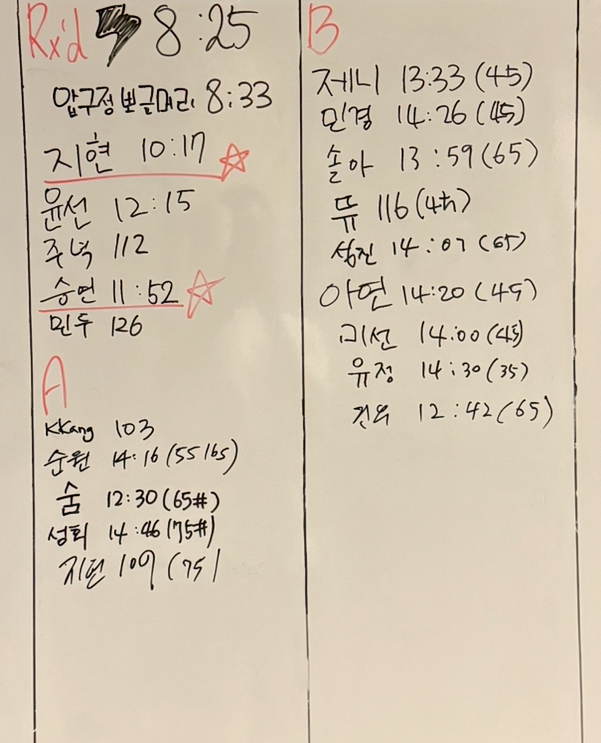 Rx'd 8:25
압구정 뽀글머리 8:33
지현 10:17
윤선 12:15
주녁 112
승연 11:52
민두 126
A
KKang 103
순원 14:16 (55/65)
숨 12:30 (65#)
성희 14:46 (75#)
109 (75)
B
제니 13:33 (45)
민경 14:26 (45)
솔아 13:59 (65)
뜌 116 (45)
성진 14:07 (65)
아연 14:20 (45)
미선 14:00 (45)
유정 14:30 (35)
12:42 (65)